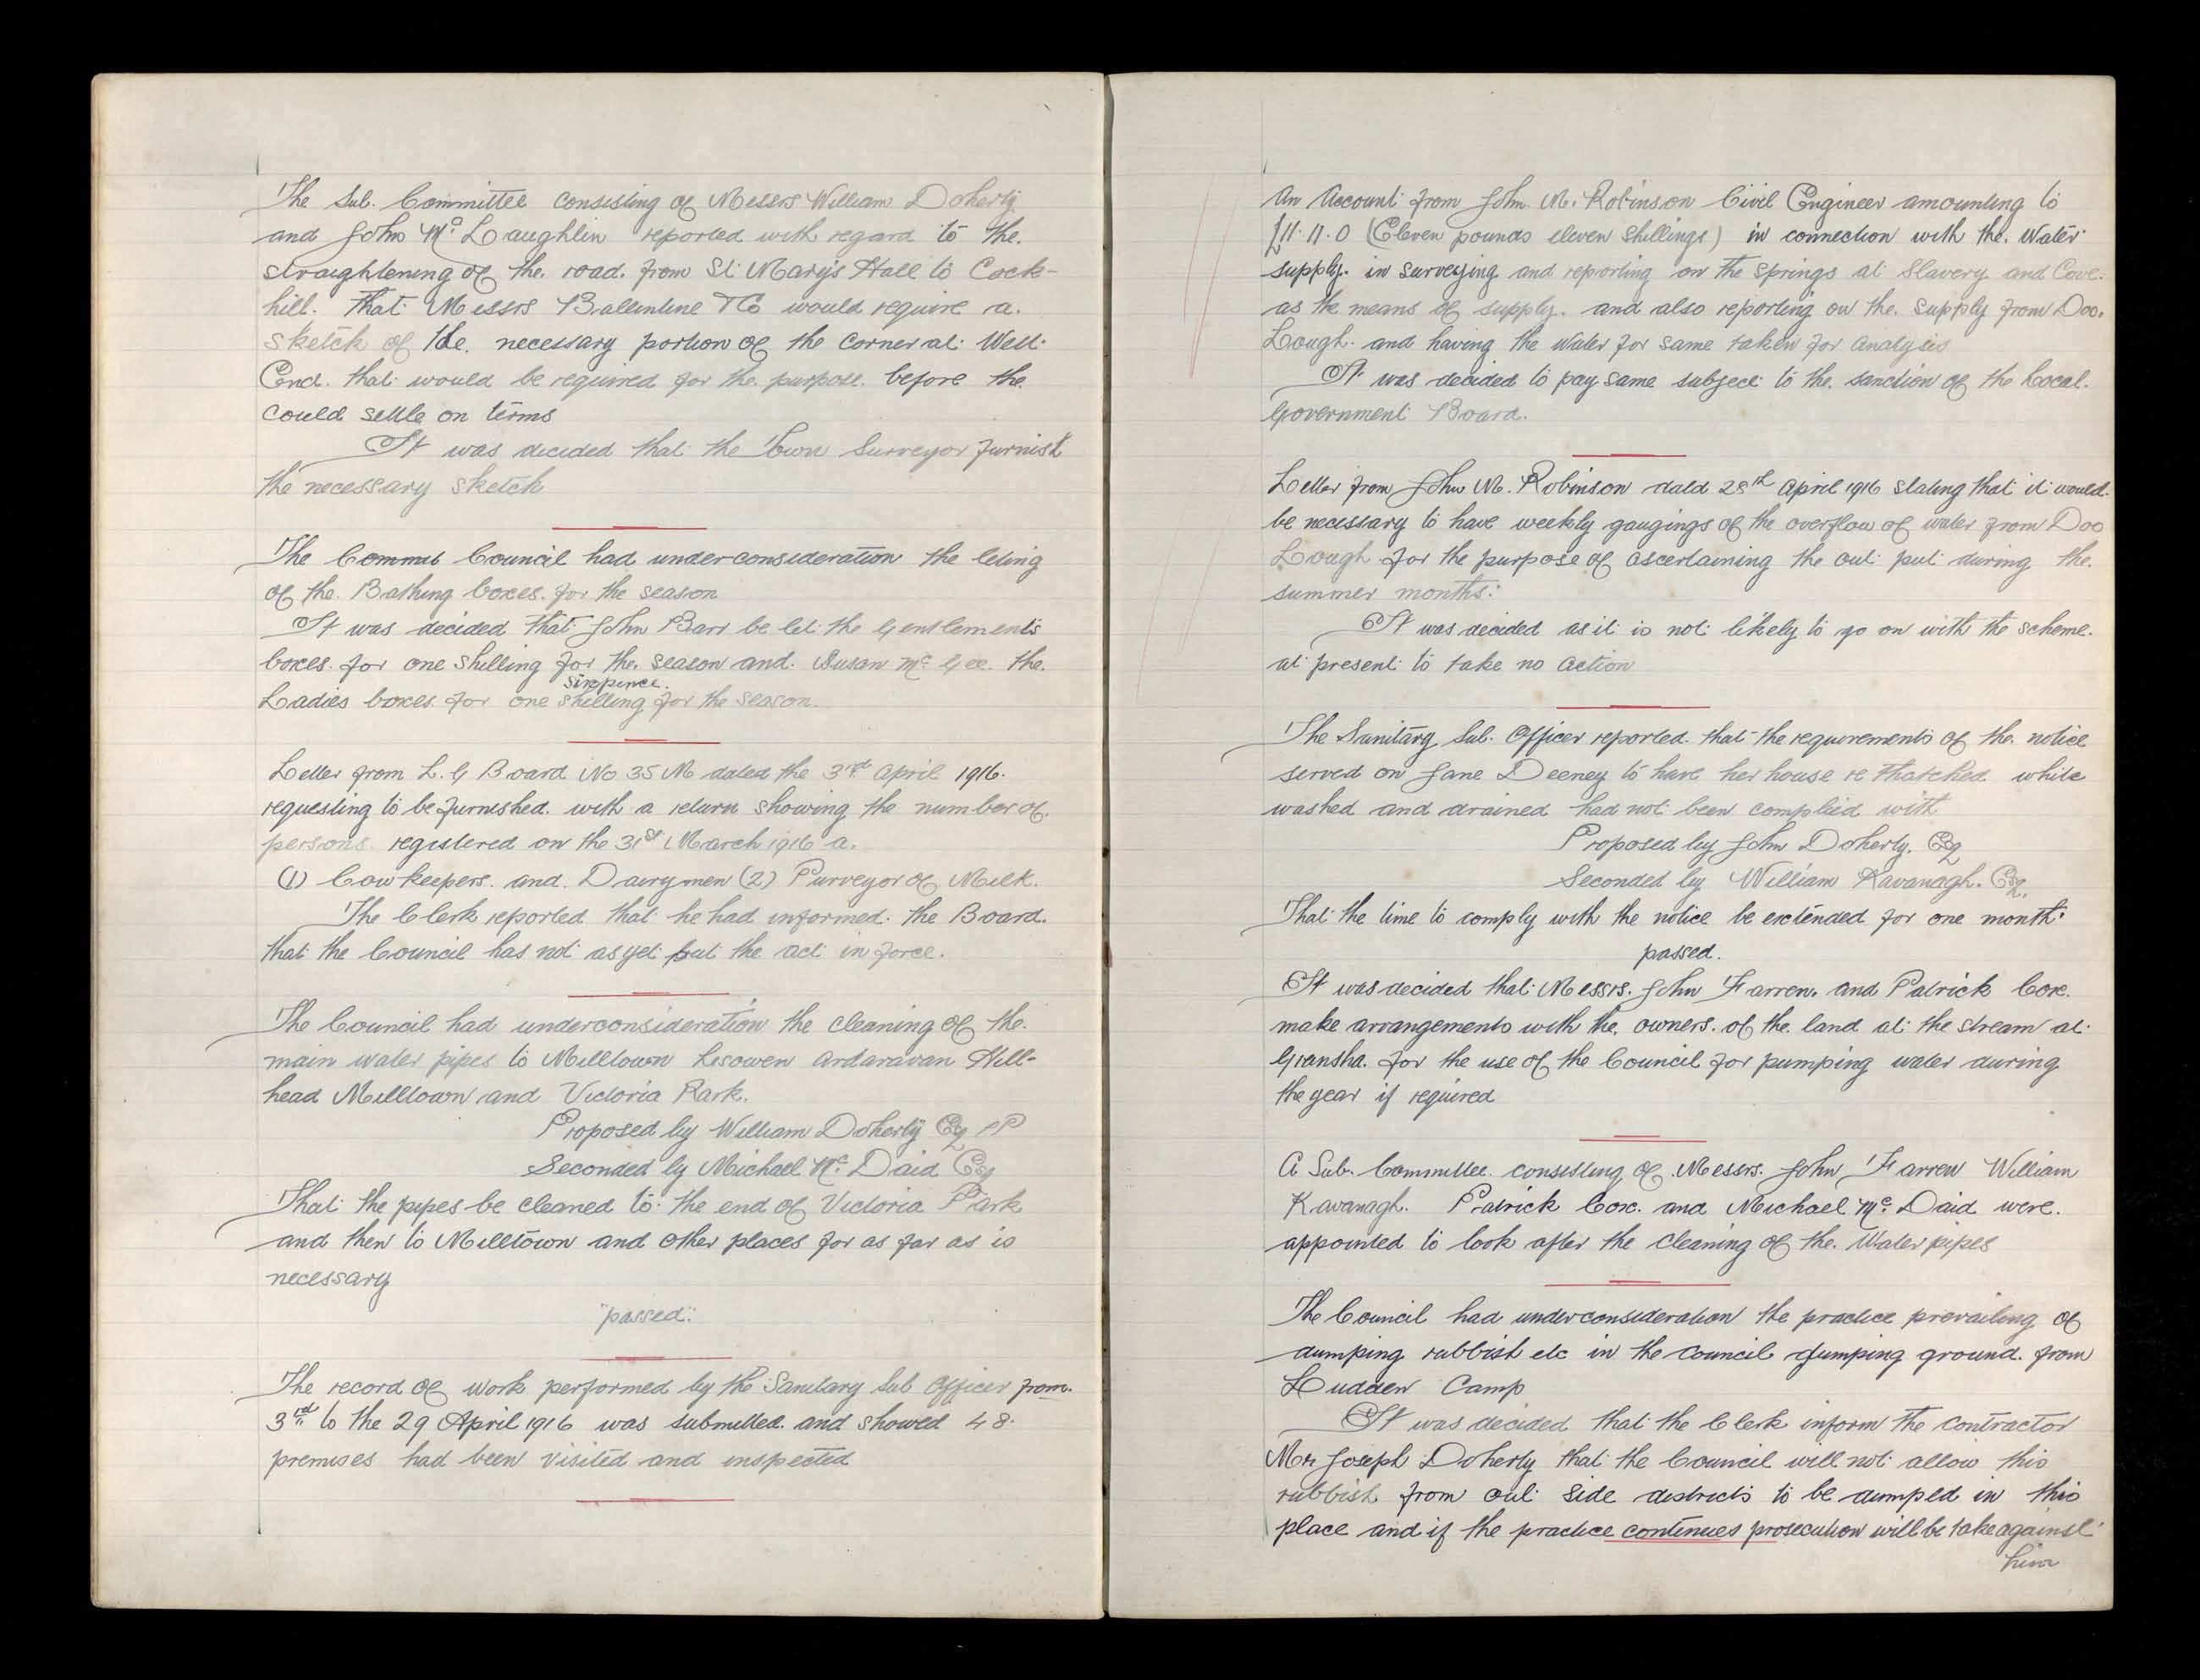 The Sub. Committee consisting of Messrs William Doherty
and John McLaughlin reported with regard to the.
straightening of the. road. from St. Mary's Hall to Cock-
hill. That Messrs Ballentine & Co would require a.
sketch of the. necessary portion of the corner at West
End. that would be required for the. purpose. before the
could settle on terms
It was decided that the Town Surveyor furnish
the necessary sketch
The Council had under consideration the leting
of the. Bathing boxes. for the season
It was decided that John Barr be let the Gentlements
boxes. for one shilling for the. season and. Susan McGee. the
sixpence.
Ladies boxes. for one shilling for the season.
Letter from L. G Board No 35 M dated the 3rd April 1916.
requesting to be furnished. with a return showing the number of.
persons registered on the 31st March 1916 a.
(1) Cowkeepers. and. Dairymen (2) Purveyor of Milk.
The Clerk reported that he had informed. the Board.
that the Council has not as yet put the act in force.
The Council had under consideration the cleaning of the.
main water pipes to Milltown Lisowen Ardaravan Hill-
head Milltown and Victoria Park.
Proposed by William Doherty Esq JP
Seconded by Michael McDaid Esq
That the pipes be cleaned to the end of Victoria Park
and then to Milltown and other places for as far as is
necessary
"passed".
The record of work performed by the Sanitary Sub Officer from.
3rd to the 29 April 1916 was submitted. and showed 48.
premises had been visited and inspected
An Account from John M. Robinson Civil Engineer amounting to
£11.11.0 (Eleven pounds eleven shillings) in connection with the. Water
supply. in surveying and reporting on the springs at Slavery and Cove.
as the means of supply. and also reporting on the. supply from Doo.
Lough. and having the water for same taken for analysis
It was decided to pay same subject to the. sanction of the Local.
Government Board.
Letter from John M. Robinson dated 28th April 1916 stating that it would.
be necessary to have weekly gaugings of the overflow of water from Doo
Lough for the purpose of ascertaining the out put during the.
summer months.
It was decided as it is not likely to go on with the scheme.
at present to take no action
The Sanitary Sub. Officer reported. that the requirements of the notice
served on Jane Deeney to have her house re thatched white
washed and drained had not been complied with
Proposed by John Doherty. Esq
Seconded by William Kavanagh. Esq.
That the time to comply with the notice be extended for one month.
passed.
It was decided that Messrs. John Farren. and Patrick Cox.
make arrangements with the. owners. of the. land at the stream at
Gransha. for the use of the Council for pumping water during
the year if required
A Sub. Committee. consisting of Messrs. John Farren William
Kavanagh. Patrick Cox. and Michael McDaid were.
appointed to look after the cleaning of the. Water pipes
The Council had under consideration the practice prevailing of
dumping rubbish etc in the Council dumping ground. from
Ludden Camp
It was decided that the Clerk inform the contractor
Mr Joseph Doherty that the Council will not allow this
rubbish from out side districts to be dumped in this
place and if the practice continues prosecution will be take against
him